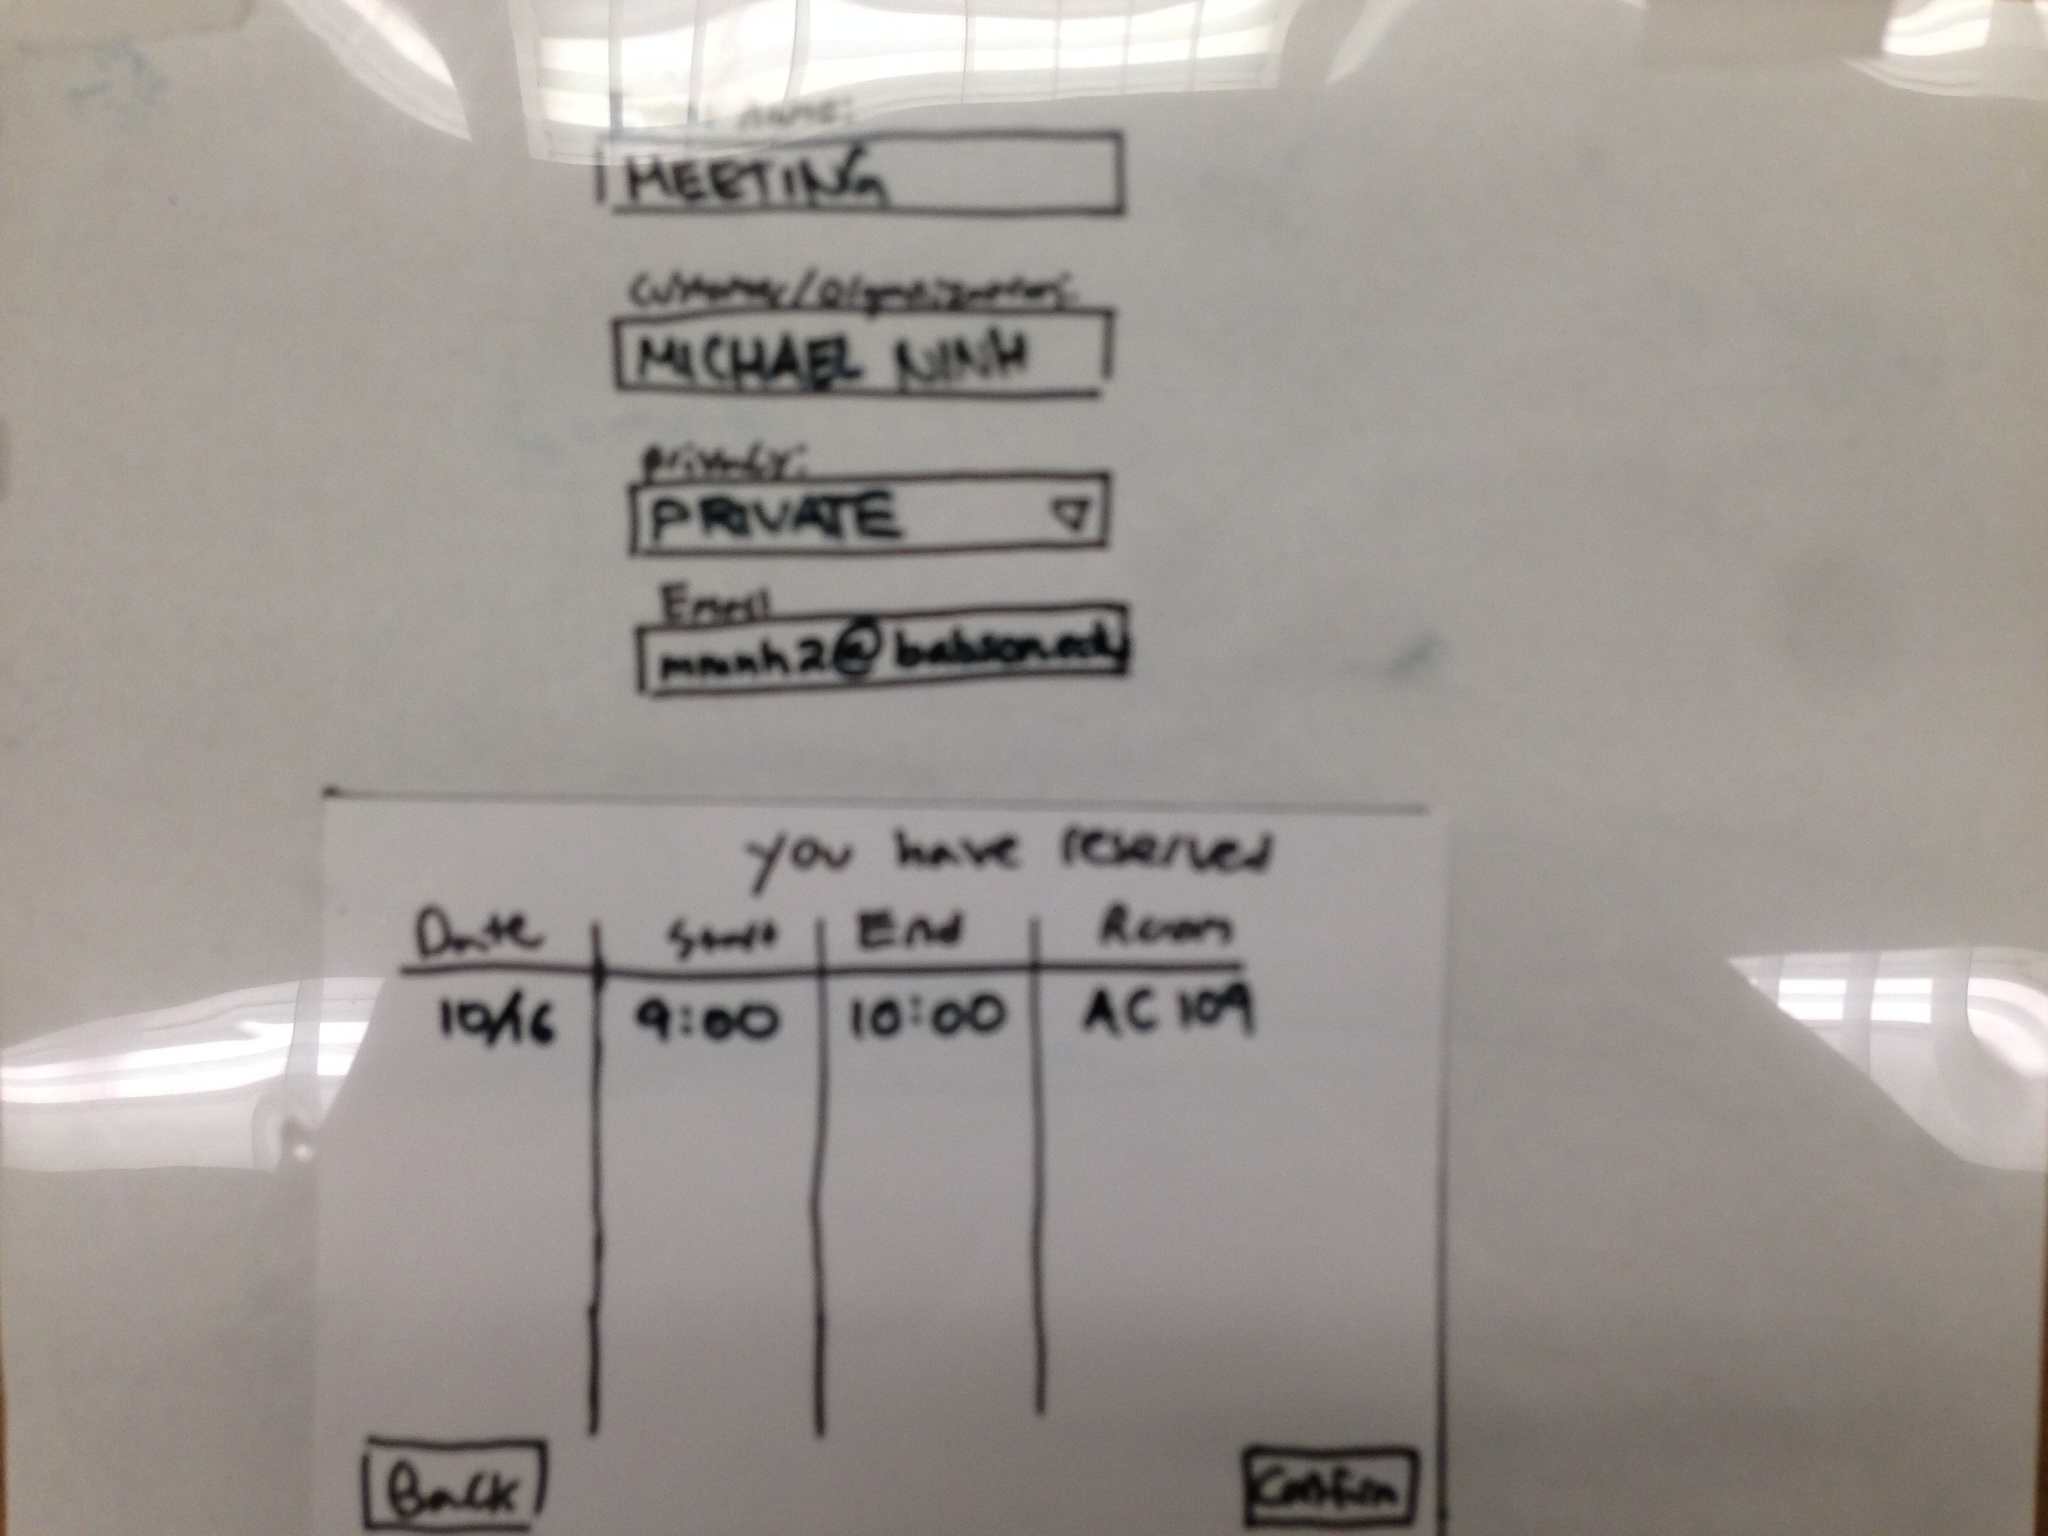 name:
MEETING
customer/organization:
MICHAEL NINH
privacy:
PRIVATE
Email
mmnh2@babson.edu
you have reserved
Date Start End Room
10/16 9:00 10:00 AC 109
Back Confirm